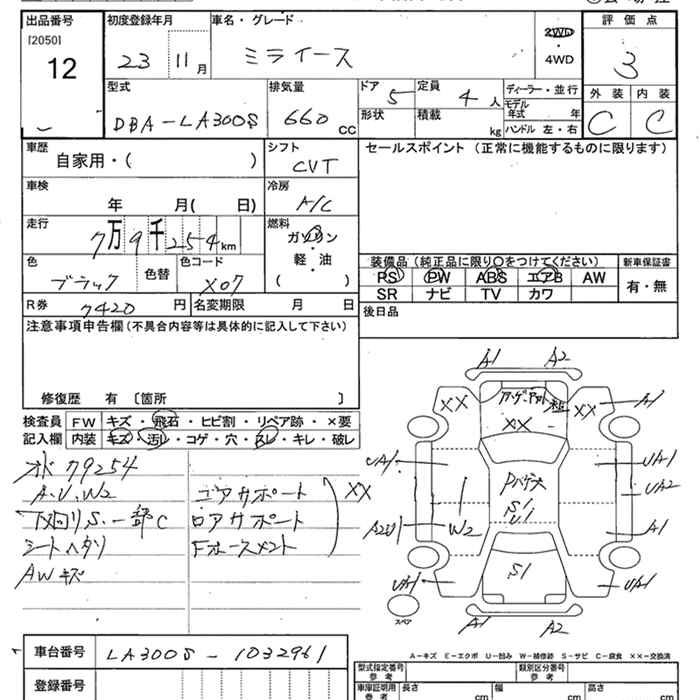 出品番号
[2050]
12
初度登録年月
23 11月
車名・グレード
ミライース
2WD
・
4WD
評価点
3
型式
DBA-LA300S
排気量
660 cc
ドア
5
定員
4 人
形状
積載
kg
ディーラー・並行
モデル年式 年
ハンドル 左・右
外装
C
内装
C
車歴
自家用・( )
シフト
CVT
セールスポイント (正常に機能するものに限ります)
車検
年 月( 日)
冷房
A/C
走行
7万9千254km
燃料
ガソリン
・
軽・油
( )
色
ブラック
色替
色コード
X07
装備品 (純正品に限り○をつけてください)
PS PW ABS エアB AW
SR ナビ TV カワ
新車保証書
有・無
R券
7420 円
名変期限 月 日
後日品
注意事項申告欄 (不具合内容等は具体的に記入して下さい)
修復歴 有 〔箇所 〕
検査員
記入欄
FW キズ・飛石・ヒビ割・リペア跡・×要
内装 キズ・汚レ・コゲ・穴・スレ・キレ・破レ
79254
A.U.W2
下回りS.一部C
シートヘタリ
AWキズ
コアサポート
ロアサポート
XX
A1 A2
XX
XX
XX
A1
UA1
UA1
UA2
A2U
W2
S1
A1
UA1
S1
UA1
スペア
A1 A2
A-キズ E-エクボ U-凹み W-補修跡 S-サビ C-腐食 ××-交換済
車台番号
LA300S-1032961
登録番号
型式指定番号
参考
類別区分番号
参考
車庫証明用
参考
長さ
cm
幅
cm
高さ
cm